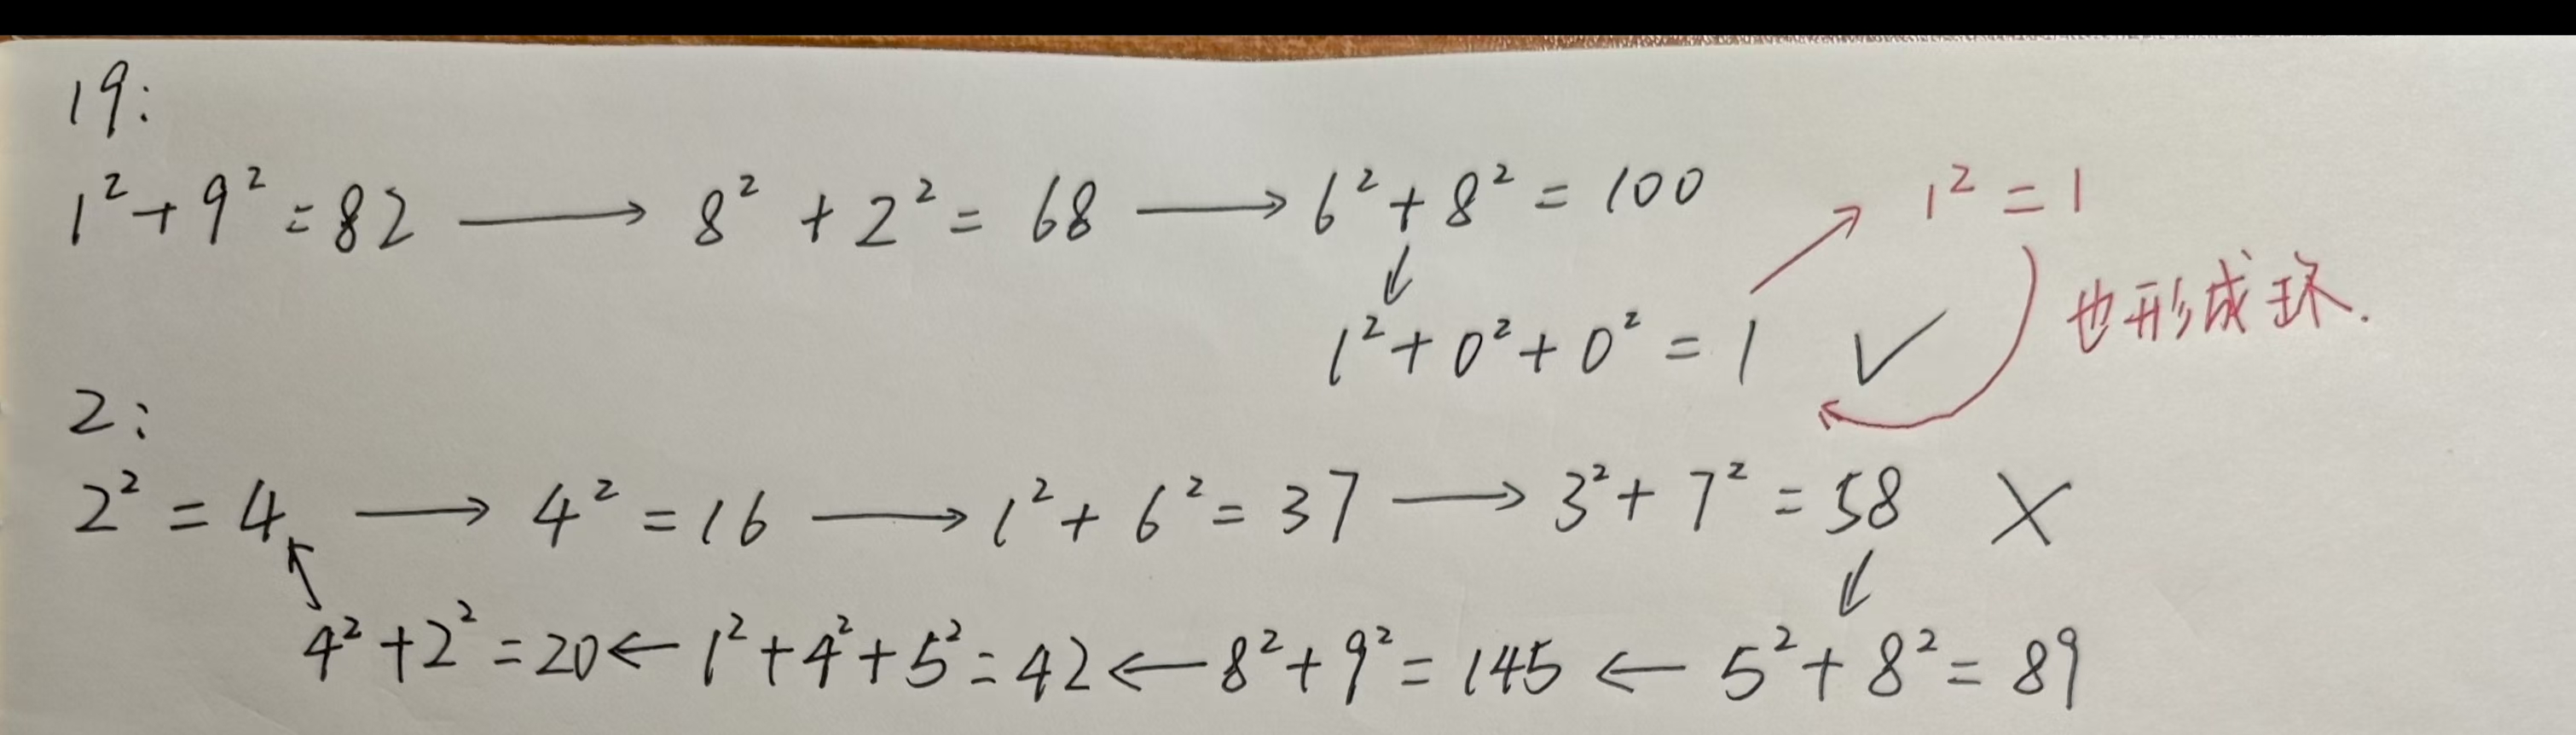 19:
1² + 9² = 82 → 8² + 2² = 68 → 6² + 8² = 100
↓
1² + 0² + 0² = 1 ✓
↗ 1² = 1
也形成环.
2:
2² = 4 → 4² = 16 → 1² + 6² = 37 → 3² + 7² = 58 ✗
↖ ↓
4² + 2² = 20 ← 1² + 4² + 5² = 42 ← 8² + 9² = 145 ← 5² + 8² = 89